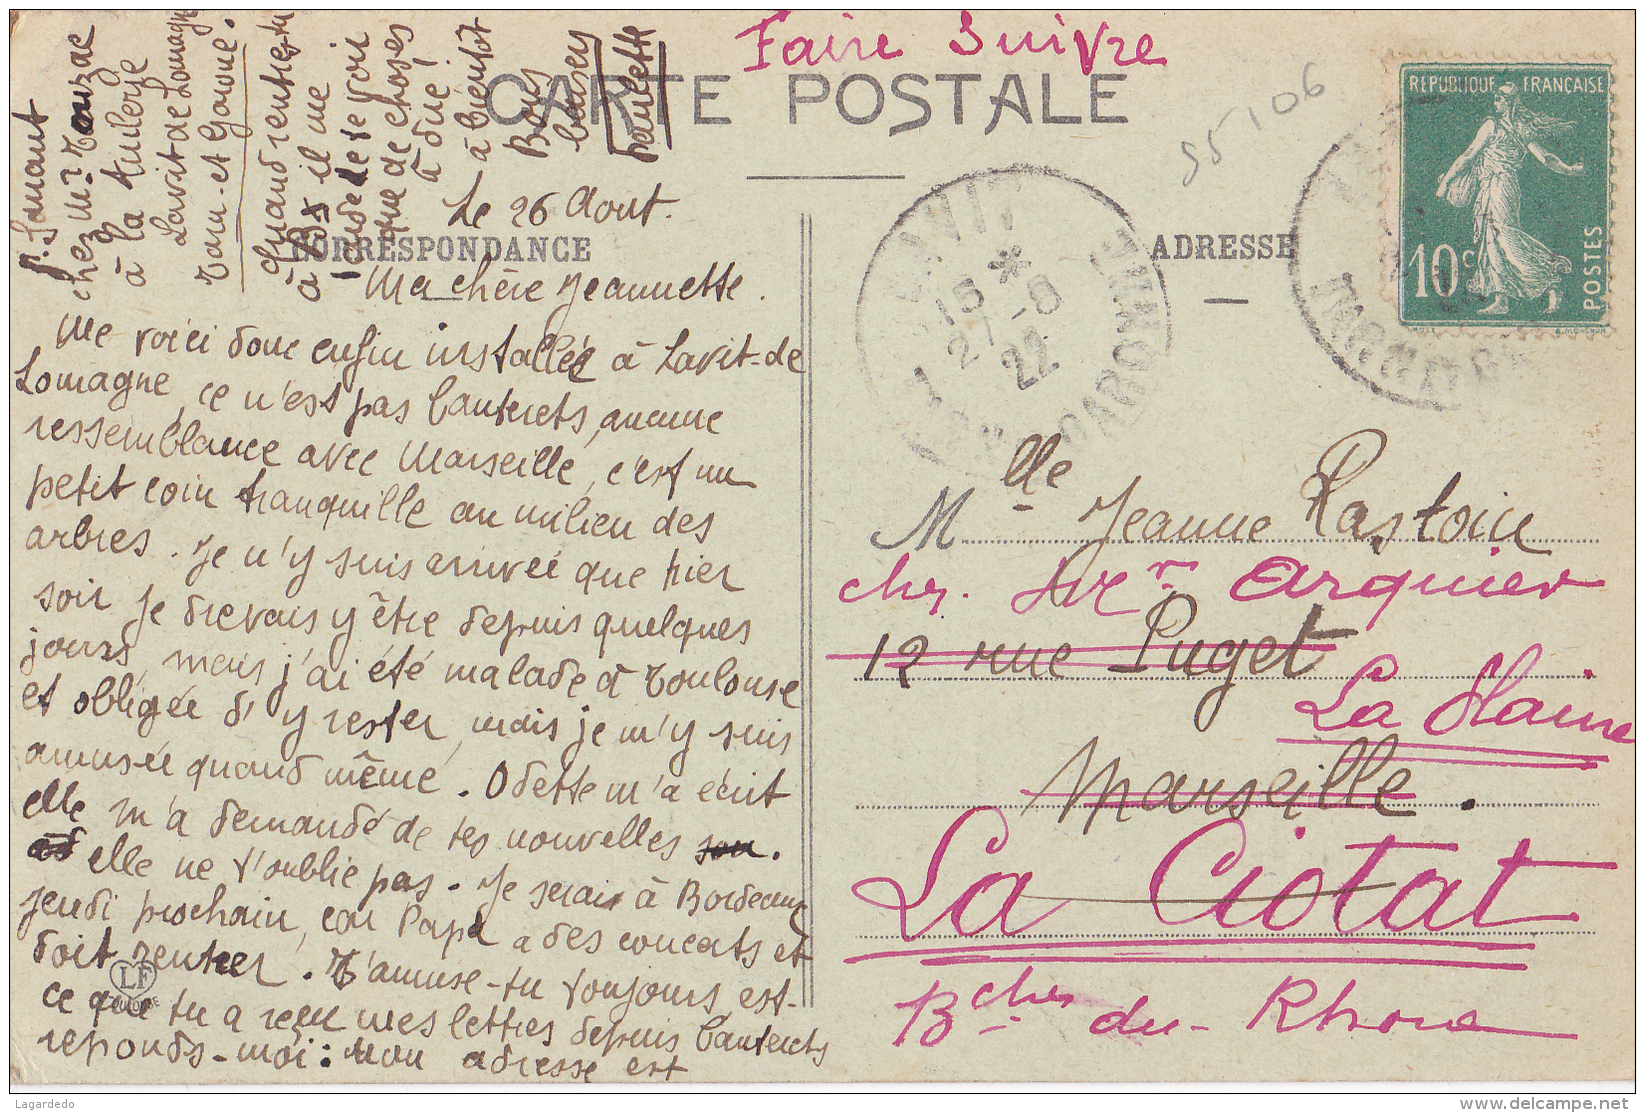 Faire Suivre
CARTE POSTALE
55106
REPUBLIQUE FRANÇAISE
10c
POSTES
CORRESPONDANCE
ADRESSE
LAVIT
15 *
27 -8
22
TARN & GARONNE
Le 26 Aout.
Ma chère Jeannette.
Me voici donc enfin installée à Lavit-de
Lomagne, ce n'est pas Cauterets, aucune
ressemblance avec Marseille, c'est un
petit coin tranquille au milieu des
arbres. Je n'y suis arrivée que hier
soir je devais y être depuis quelques
jours, mais j'ai été malade à Toulouse
et obligée d'y rester, mais je m'y suis
amusée quand même. Odette m'a écrit
elle m'a demandé de tes nouvelles
elle ne t'oublie pas. Je serai à Bordeaux
jeudi prochain, car Papa a des concerts et
doit rentrer. T'amuse-tu toujours, est-
ce que tu a reçu mes lettres depuis Cauterets
reponds-moi: mon adresse est
P. Samant
chez Mr Touzac
à la Tuilerie
Lavit de Lomagne
Tarn-et-Garonne.
Quand renties-tu
à Bx il me
tarde de te voir
que de choses
à dire!
à bientôt
Bons
baisers
Paulette
LF
TOULOUSE
Mlle Jeanne Rastoin
chez Mr Arquier
12 rue Puget
La Maine
Marseille.
La Ciotat
Bches du-Rhone
Lagardedo
www.delcampe.net